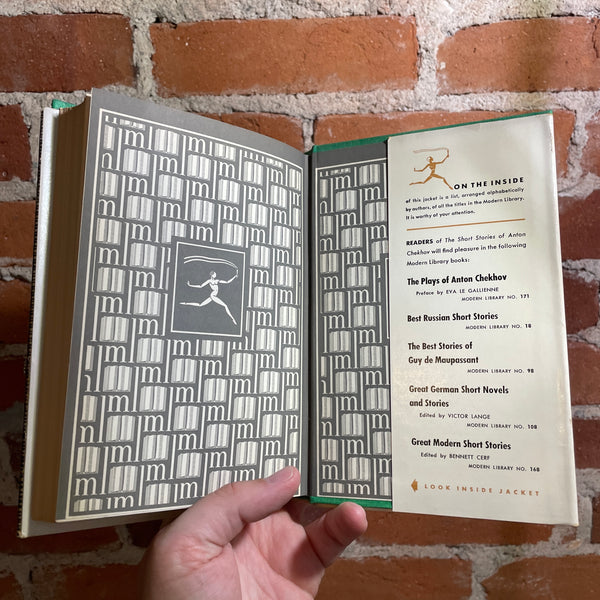 ON THE INSIDE
of this jacket is a list, arranged alphabetically
by authors, of all the titles in the Modern Library.
It is worthy of your attention.
READERS of The Short Stories of Anton
Chekhov will find pleasure in the following
Modern Library books:
The Plays of Anton Chekhov
Preface by EVA LE GALLIENNE
MODERN LIBRARY NO. 171
Best Russian Short Stories
MODERN LIBRARY NO. 18
The Best Stories of
Guy de Maupassant
MODERN LIBRARY NO. 98
Great German Short Novels
and Stories
Edited by VICTOR LANGE
MODERN LIBRARY NO. 108
Great Modern Short Stories
Edited by BENNETT CERF
MODERN LIBRARY NO. 168
LOOK INSIDE JACKET